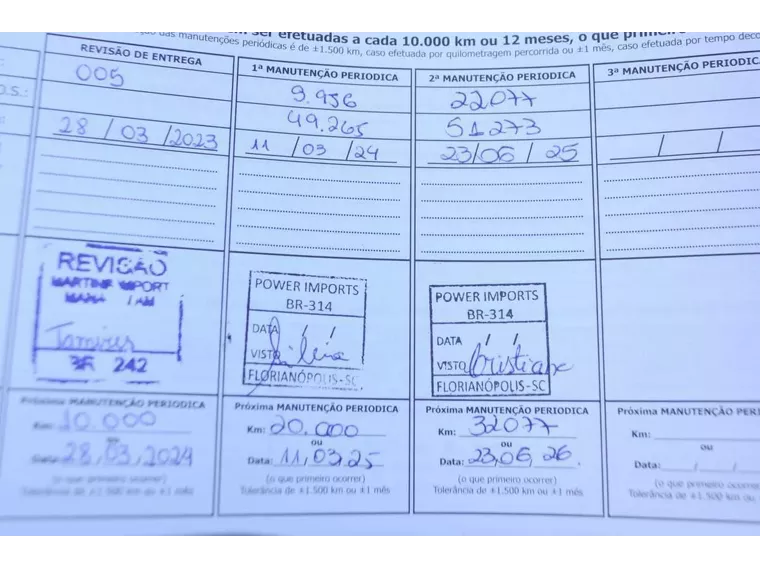 ser efetuadas a cada 10.000 km ou 12 meses, o que prime
das manutenções periódicas é de ±1.500 km, caso efetuada por quilometragem percorrida ou ±1 mês, caso efetuada por tempo deco
REVISÃO DE ENTREGA
005
28 / 03 / 2023
REVISÃO
242
Próxima MANUTENÇÃO PERIODICA
Km: 10.000
ou
Data: 28,03,2024
(o que primeiro ocorrer)
Tolerância de ±1.500 km ou ±1 mês
1ª MANUTENÇÃO PERIODICA
9.956
49.265
11 / 03 / 24
POWER IMPORTS
BR-314
DATA / /
VISTO
FLORIANÓPOLIS-SC
Próxima MANUTENÇÃO PERIODICA
Km: 20.000
ou
Data: 11,03,25
(o que primeiro ocorrer)
Tolerância de ±1.500 km ou ±1 mês
2ª MANUTENÇÃO PERIODICA
22077
51273
23/06 / 25
POWER IMPORTS
BR-314
DATA / /
VISTO Cristiane
FLORIANÓPOLIS-SC
Próxima MANUTENÇÃO PERIODICA
Km: 32077
ou
Data: 23,06,26.
(o que primeiro ocorrer)
Tolerância de ±1.500 km ou ±1 mês
3ª MANUTENÇÃO PERIODICA
/ /
Próxima MANUTENÇÃO PERI
Km:
ou
Data: / /
(o que primeiro ocorrer
Tolerância de ±1.500 km ou ±1 m